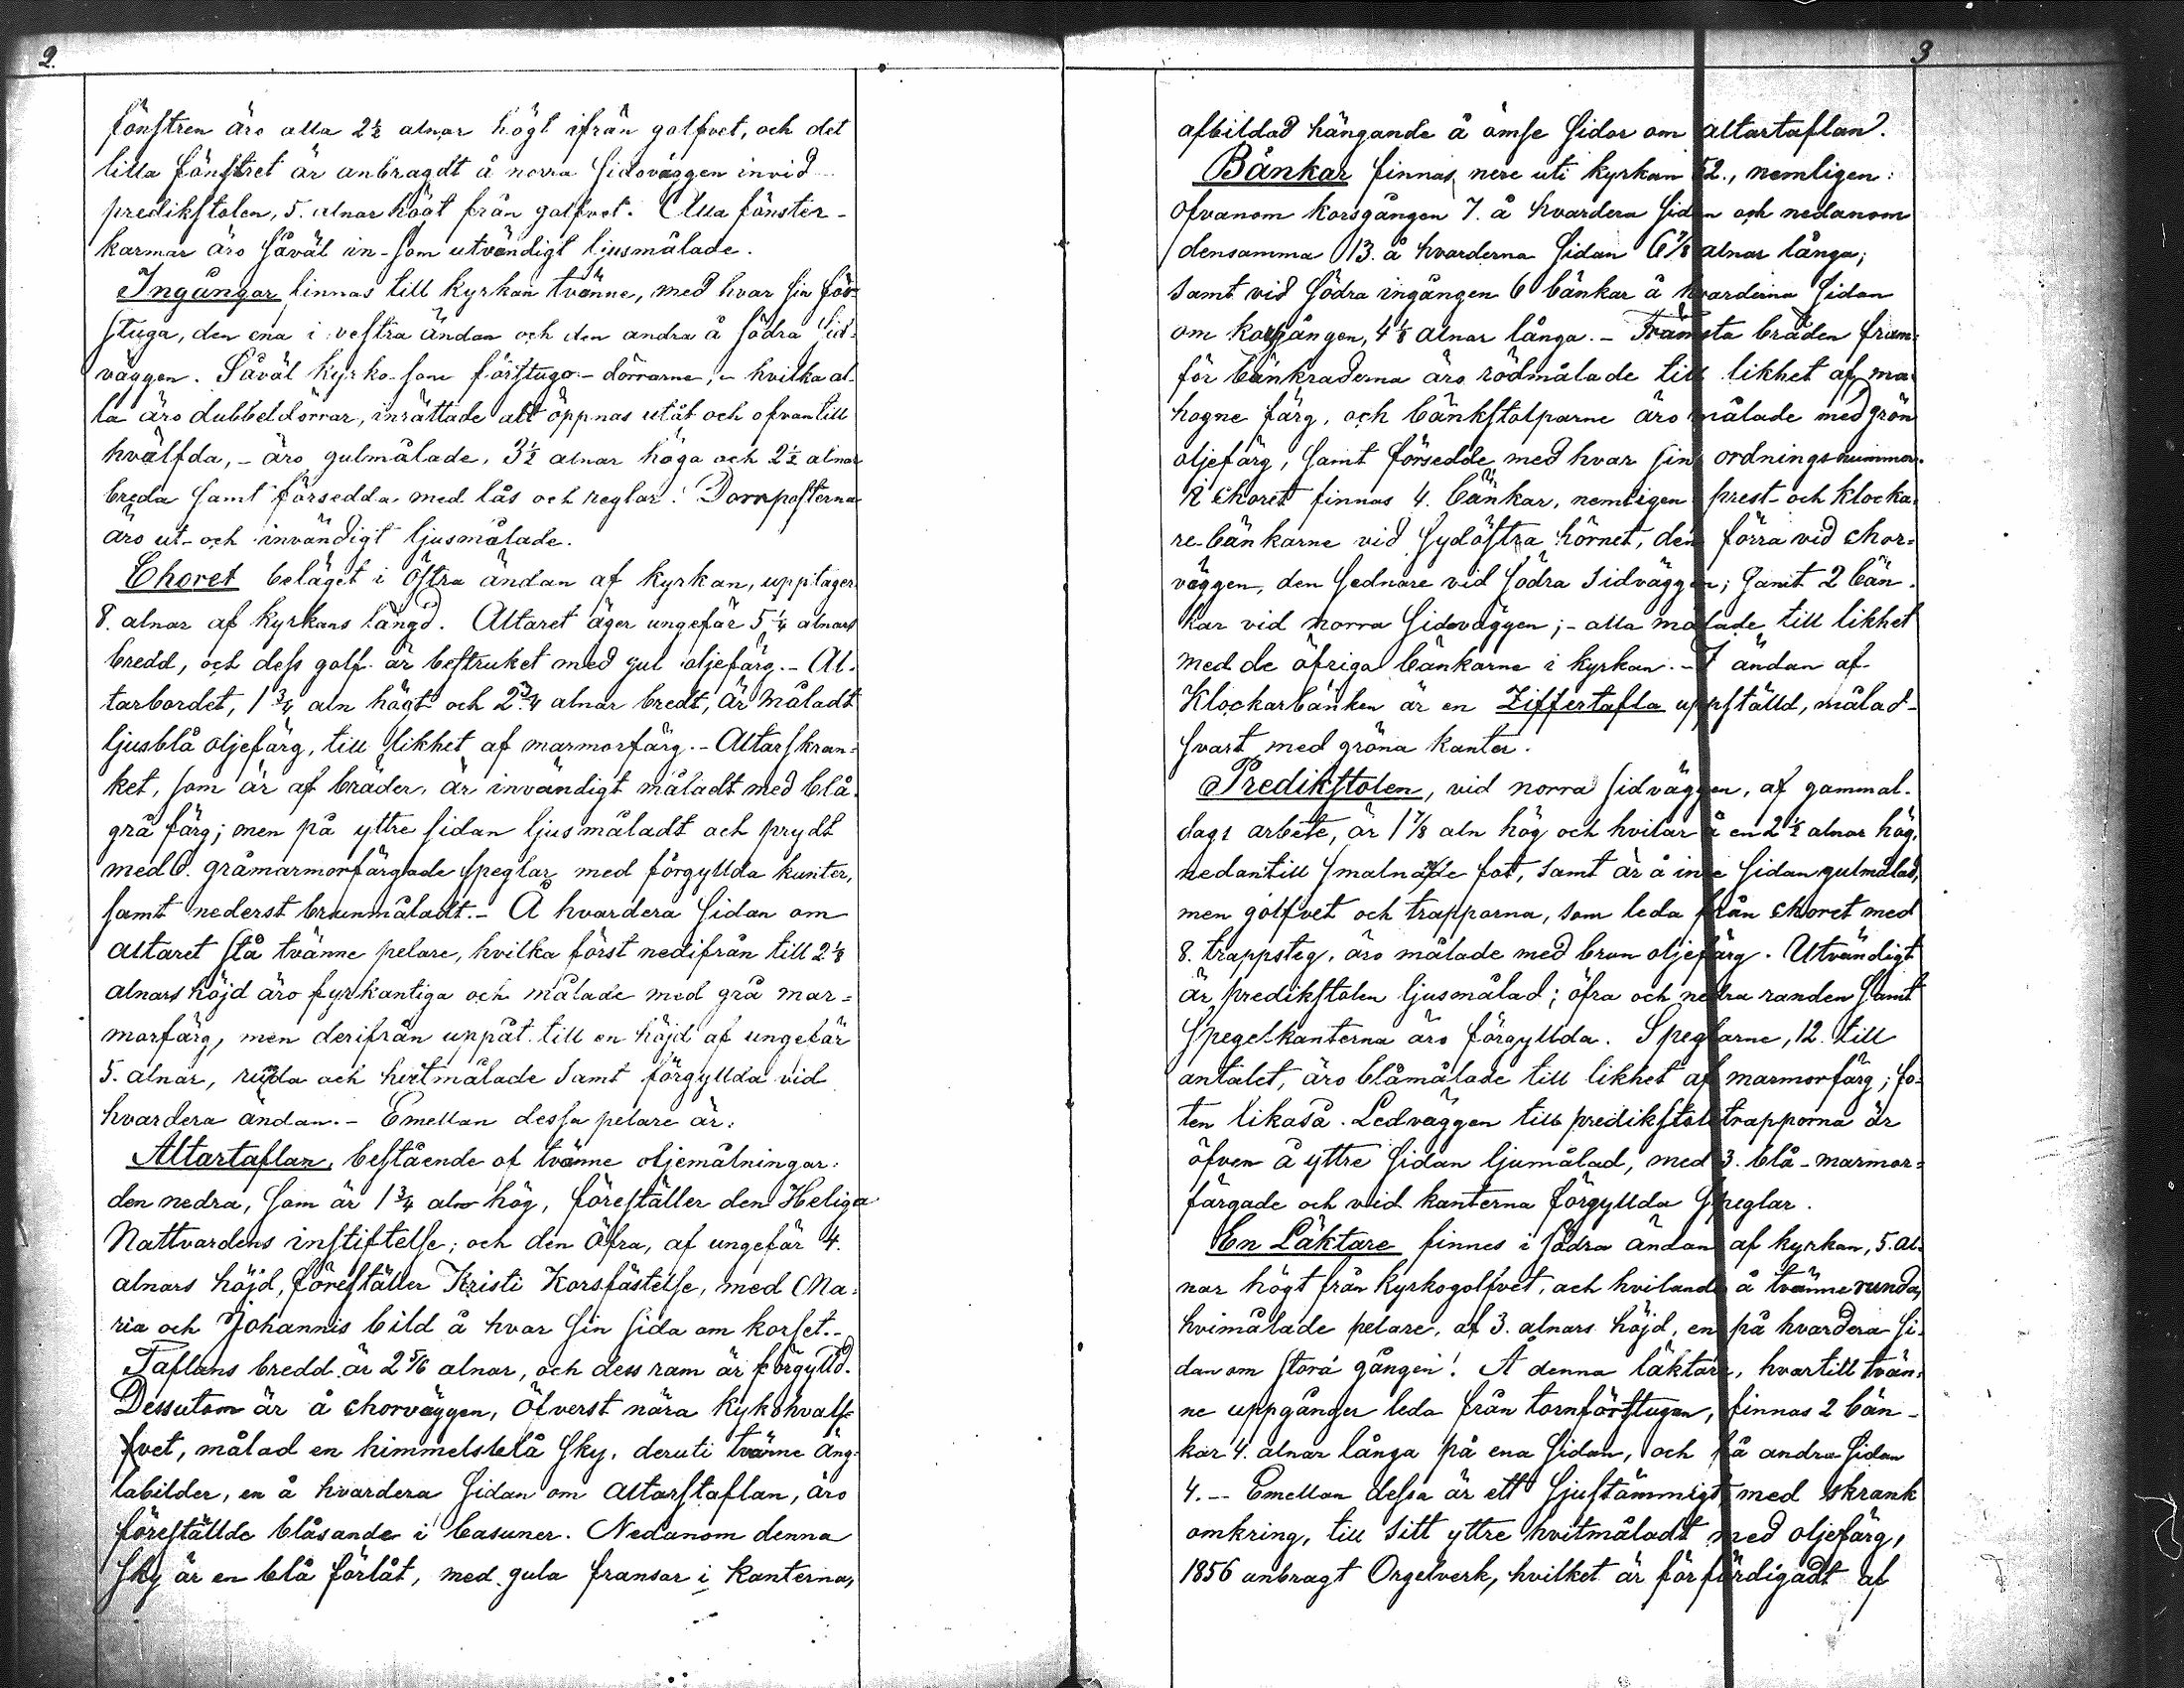 2.
fönstren äro alla 2½ alnar högt ifrån golfvet, och det
lilla fönstret är anbragdt å norra sidoväggen invid
predikstolen, 5. alnar högt från golfvet. Alla fönster-
karmar äro såväl in- som utvändigt ljusmålade.
Ingångar finnas till kyrkan tvänne, med hvar sin för-
stuga, den ena i vestra ändan och den andra å södra sid-
väggen. Såväl kyrko- som förstugo-dörrarne, - hvilka al-
la äro dubbeldörrar, inrättade att öppnas utåt och ofvantill
hvälfda, - äro gulmålade, 3½ alnar höga och 2½ alnar
breda samt försedda med lås och reglar. Dörrposterna
äro ut- och invändigt ljusmålade.
Choret beläget i östra ändan af kyrkan, upptager
8. alnar af kyrkans längd. Altaret äger ungefär 5¼ alnars
bredd, och dess golf är bestruket med gul oljefärg. - Al-
tarbordet, 1¾ aln högt och 2¾ alnar bredt, är måladt
ljusblå oljefärg, till likhet af marmorfärg. - Altarskran-
ket, som är af bräder, är invändigt måladt med blå-
grå färg; men på yttre sidan ljusmåladt och prydt
med 6. gråmarmorfärgade speglar med förgyllda kanter,
samt nederst brunmåladt. - Å hvardera sidan om
altaret stå tvänne pelare, hvilka först nedifrån till 2⅛
alnars höjd äro fyrkantiga och målade med grå mar-
morfärg, men derifrån uppåt till en höjd af ungefär
5. alnar, runda och hvitmålade samt förgyllda vid
hvardera ändan. - Emellan dessa pelare är:
Altartaflan, bestående af tvänne oljemålningar:
den nedra, som är 1¾ aln hög, föreställer den Heliga
Nattvardens instiftelse; och den öfra, af ungefär 4.
alnars höjd, föreställer Kristi Korsfästelse, med Ma-
ria och Johannis bild å hvar sin sida om korset. -
Taflans bredd är 2 5/6 alnar, och dess ram är förgylld.
Dessutom är å chorväggen, öfverst nära kykohvalf-
fvet, målad en himmelsblå sky, deruti tvänne äng-
labilder, en å hvardera sidan om altarstaflan, äro
föreställde blåsande i basuner. Nedanom denna
sky är en blå förlåt, med gula fransar i kanterna,
3
afbildad hängande å ömse sidor om altartaflan.
Bänkar finnas nere uti kyrkan 52., nemligen:
ofvanom korsgången 7. å hvardera sidan och nedanom
densamma 13. å hvarderna sidan 6⅞ alnar långa;
samt vid södra ingången 6 bänkar å hvarderna sidan
om korsgången, 4⅛ alnar långa. - Främsta bräden fram-
för bänkraderna äro rödmålade till likhet af ma-
hogne färg, och bänkstolparne äro målade med grön
oljefärg, samt försedde med hvar sin ordningsnummer.
I choret finnas 4. bänkar, nemligen prest- och klocka-
re-bänkarne vid sydöstra hörnet, den förra vid chor-
väggen, den sednare vid södra sidväggen; samt 2 bän-
kar vid norra sidoväggen; - alla målade till likhet
med de öfriga bänkarne i kyrkan. - I ändan af
Klockarbänken är en Ziffertafla uppställd, målad
svart med gröna kanter.
Predikstolen, vid norra sidväggen, af gammal-
dags arbete, är 1⅞ aln hög och hvilar å en 2½ alnar hög,
nedantill smalnande fot, samt är å inre sidan gulmålad,
men golfvet och trapporna, som leda från choret med
8. trappsteg, äro målade med brun oljefärg. Utvändigt
är predikstolen ljusmålad; öfra och nedra randen samt
spegelkanterna äro förgyllda. Speglarne, 12. till
antalet, äro blåmålade till likhet af marmorfärg; fo-
ten likaså. Ledväggen till predikstolstrapporna är
öfven å yttre sidan ljumålad, med 3. blå-marmor-
färgade och vid kanterna förgyllda speglar.
En Läktare finnes i södra ändan af kyrkan, 5. al-
nar högt från kyrkogolfvet, och hvilande å tvänne runda,
hvimålade pelare, af 3. alnars höjd, en på hvardera si-
dan om stora gången. Å denna läktare, hvartill tvän-
ne uppgånger leda från tornförstugan, finnas 2 bän-
kar 4. alnar långa på ena sidan, och på andra sidan
4. -- Emellan dessa är ett sjustämmigt med skrank
omkring, till sitt yttre hvitmåladt med oljefärg,
1856 anbragt Orgelverk, hvilket är förfärdigadt af